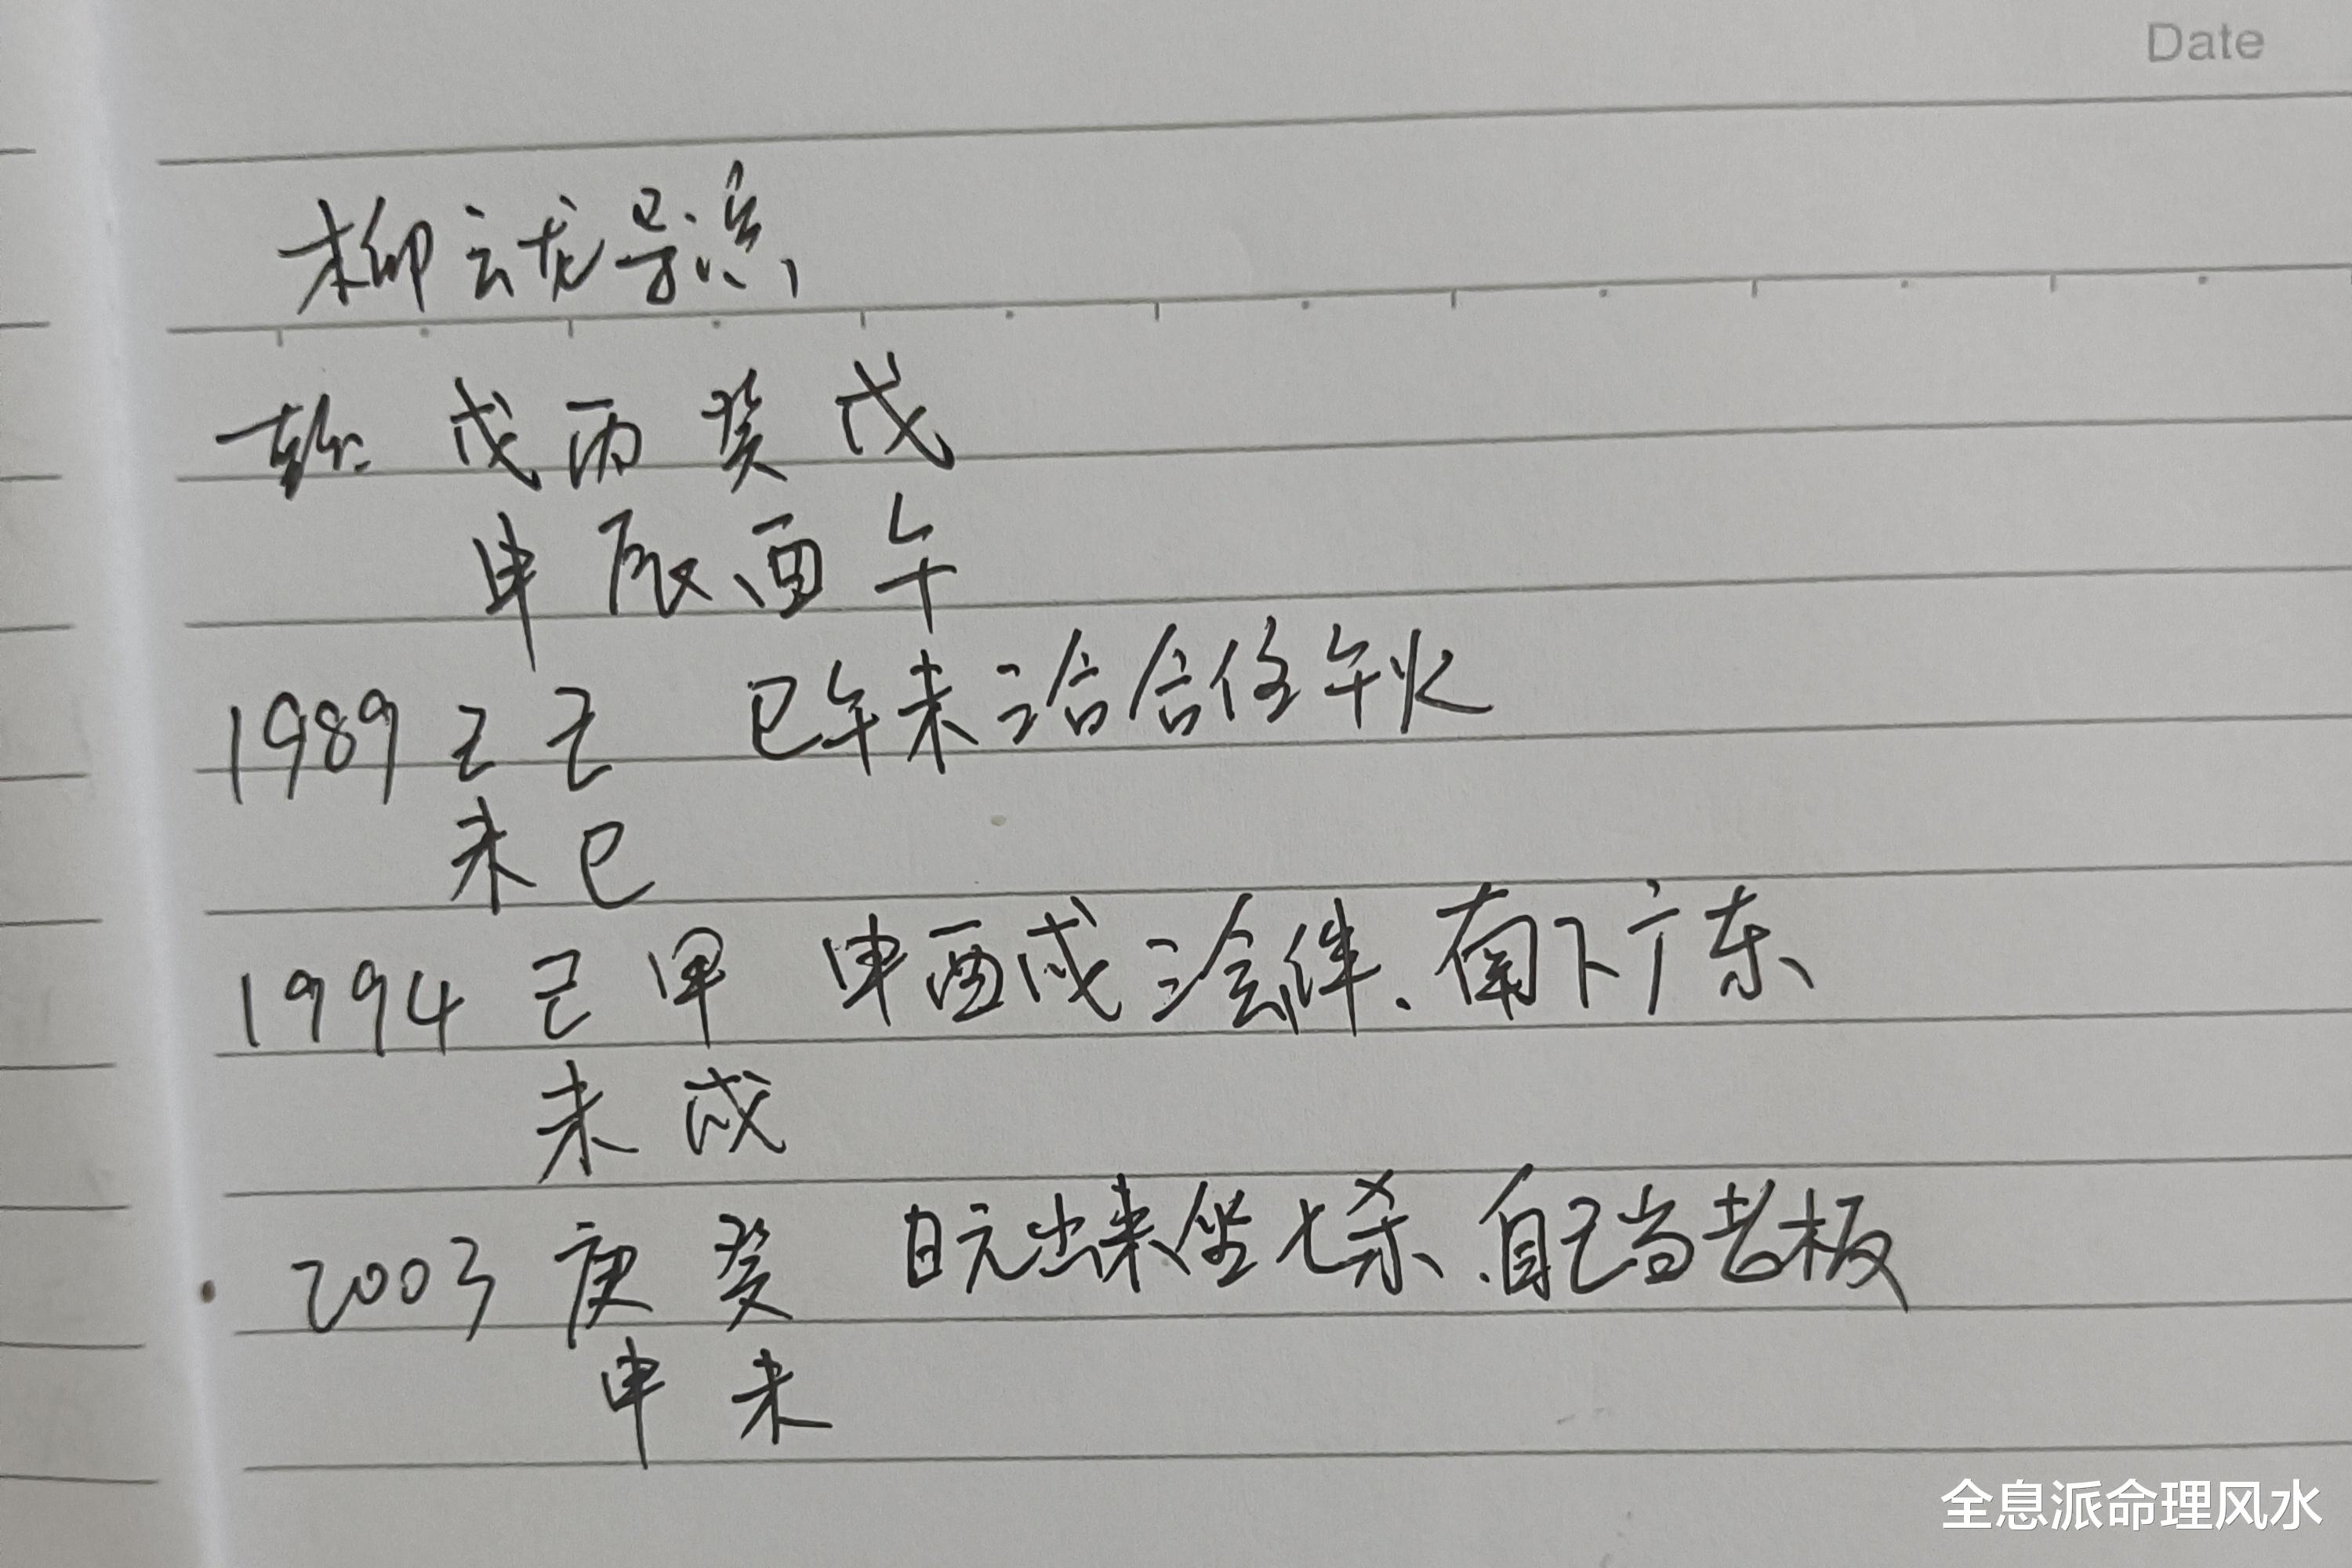 Date
柳云龙导演
乾: 戊 丙 癸 戊
申 辰 酉 午
1989 己 己 巳午未三合合住午火
未 巳
1994 己 甲 申酉戌三会伴、南下广东
未 戌
2003 庚 癸 日元出来坐七杀、自己当老板
申 未
全息派命理风水